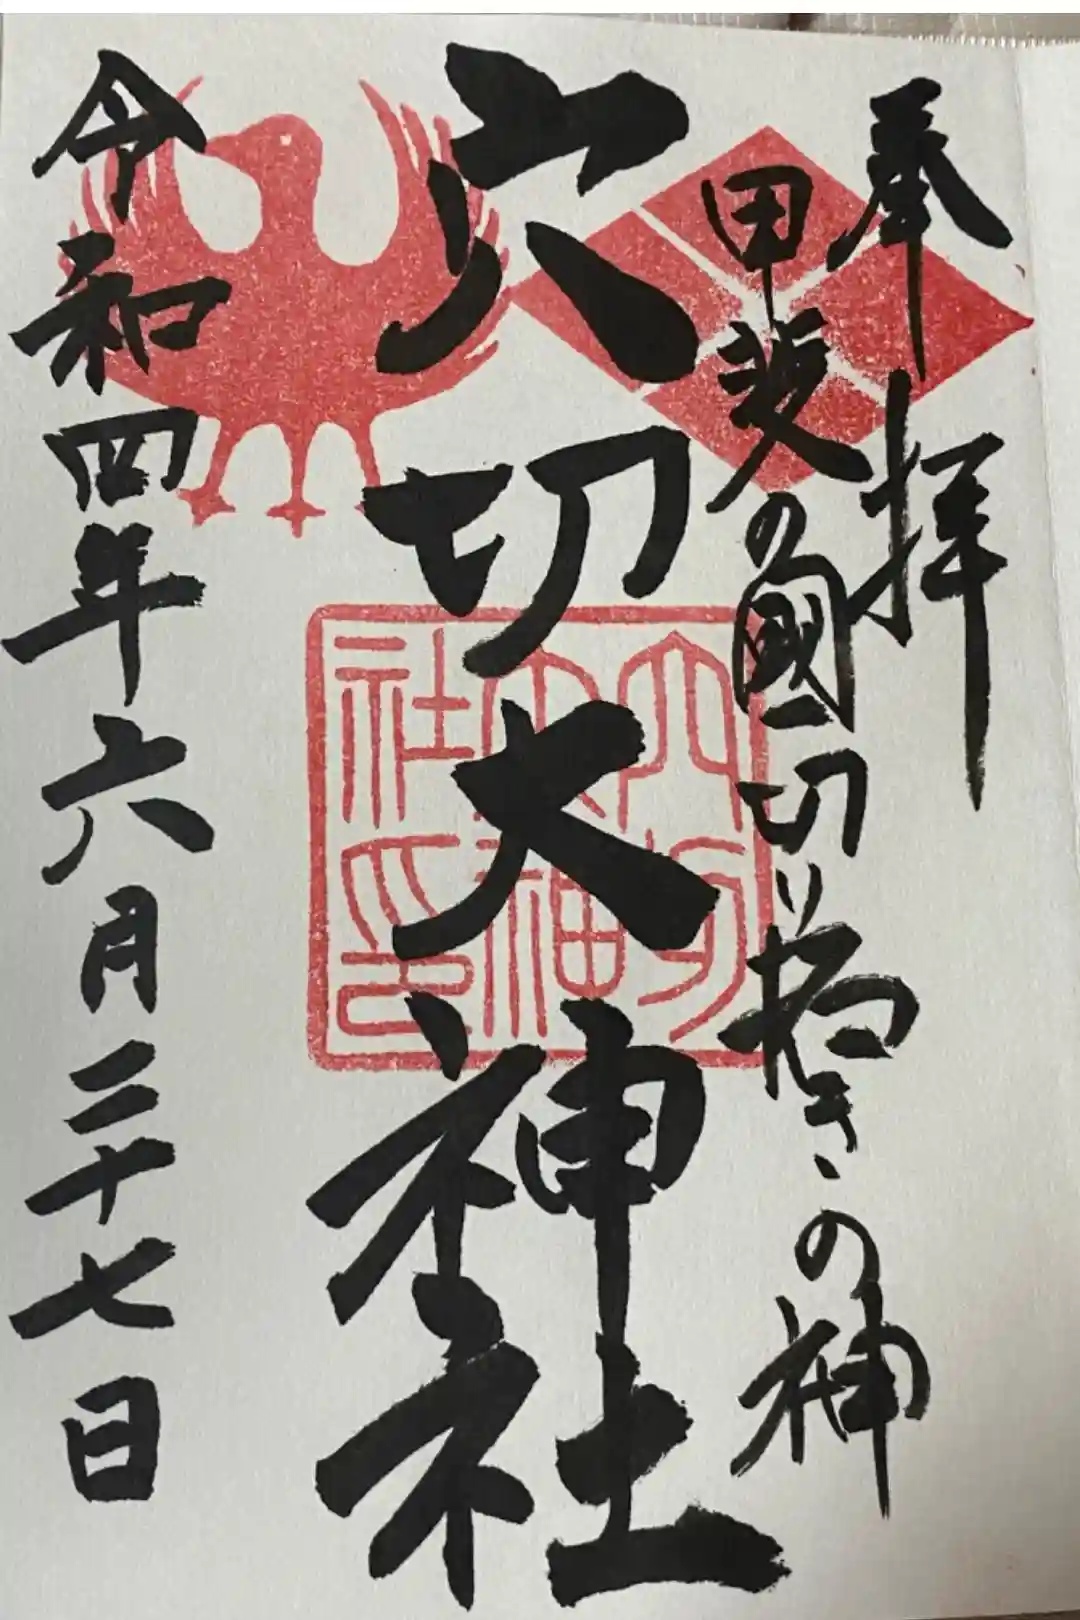 奉拝
甲斐の國切り抜きの神
穴切大神社
穴切
大神
社印
令和四年六月二十七日